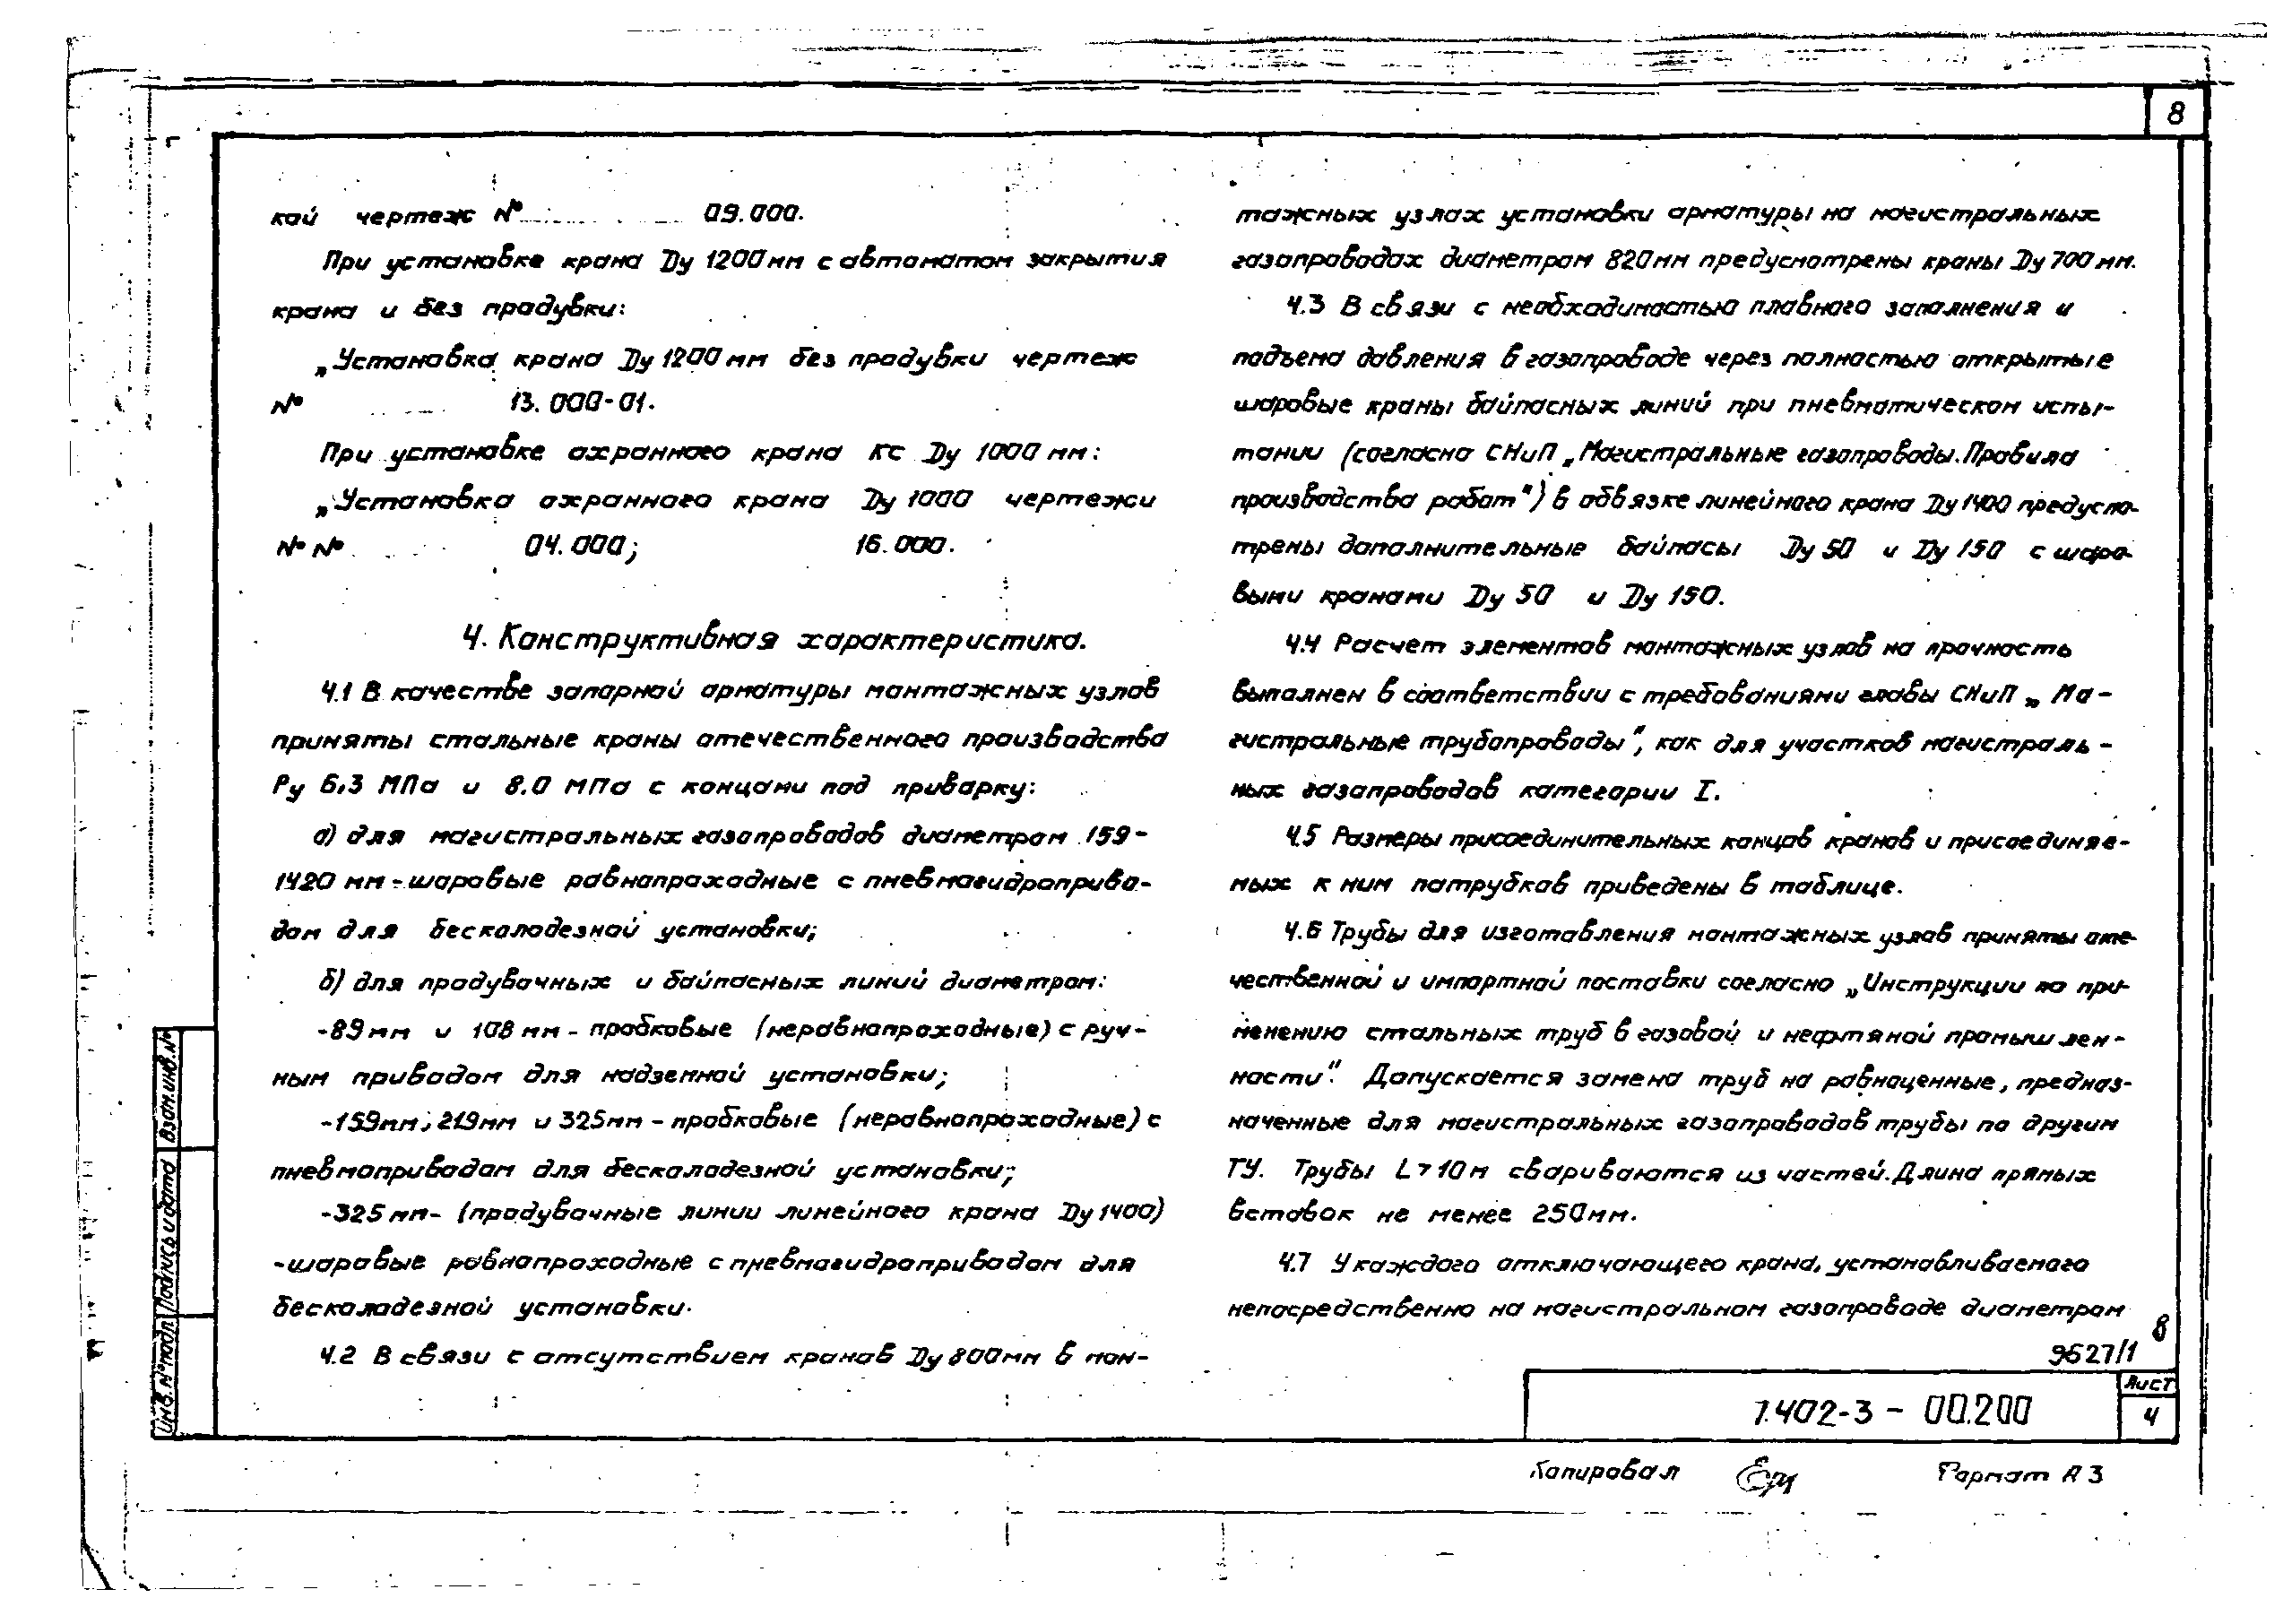 8
кой чертеж № 09.000.
При установке крана Ду 1200 мм с автоматом закрытия
крана и без продувки:
„Установка крана Ду 1200 мм без продувки чертеж
№ 13.000-01.
При установке охранного крана КС Ду 1000 мм:
„Установка охранного крана Ду 1000 чертежи
№ № 04.000; 16.000.
4. Конструктивная характеристика.
4.1 В качестве запорной арматуры монтажных узлов
приняты стальные краны отечественного производства
Ру 6,3 МПа и 8.0 МПа с концами под приварку:
а) для магистральных газопроводов диаметром 159-
1420 мм - шаровые равнопроходные с пневмогидроприво-
дом для бесколодезной установки;
б) для продувочных и байпасных линий диаметром:
-89 мм и 108 мм - пробковые (неравнопроходные) с руч-
ным приводом для надземной установки;
-159мм; 219мм и 325мм - пробковые (неравнопроходные) с
пневмоприводом для бесколодезной установки;
-325 мм- (продувочные линии линейного крана Ду 1400)
-шаровые равнопроходные с пневмогидроприводом для
бесколодезной установки.
4.2 В связи с отсутствием кранов Ду 800мм в мон-
тажных узлах установки арматуры на магистральных
газопроводах диаметром 820мм предусмотрены краны Ду 700 мм.
4.3 В связи с необходимостью плавного заполнения и
подъема давления в газопроводе через полностью открытые
шаровые краны байпасных линий при пневматическом испы-
тании (согласно СНиП „Магистральные газопроводы. Правила
производства работ") в обвязке линейного крана Ду 1400 предусмо-
трены дополнительные байпасы Ду 50 и Ду 150 с шаро-
выми кранами Ду 50 и Ду 150.
4.4 Расчет элементов монтажных узлов на прочность
выполнен в соответствии с требованиями главы СНиП „Ма-
гистральные трубопроводы", как для участков магистраль-
ных газопроводов категории I.
4.5 Размеры присоединительных концов кранов и присоединяе-
мых к ним патрубков приведены в таблице.
4.6 Трубы для изготовления монтажных узлов приняты оте-
чественной и импортной поставки согласно „Инструкции по при-
менению стальных труб в газовой и нефтяной промышлен-
ности". Допускается замена труб на равноценные, предназ-
наченные для магистральных газопроводов трубы по другим
ТУ. Трубы L > 10м свариваются из частей. Длина прямых
вставок не менее 250мм.
4.7 У каждого отключающего крана, устанавливаемого
непосредственно на магистральном газопроводе диаметром
8
9627/1
1.402-3 - 00.200
Лист
4
Копировал
Формат А3
Взам. инв. №
Подпись и дата
Инв. № подл.